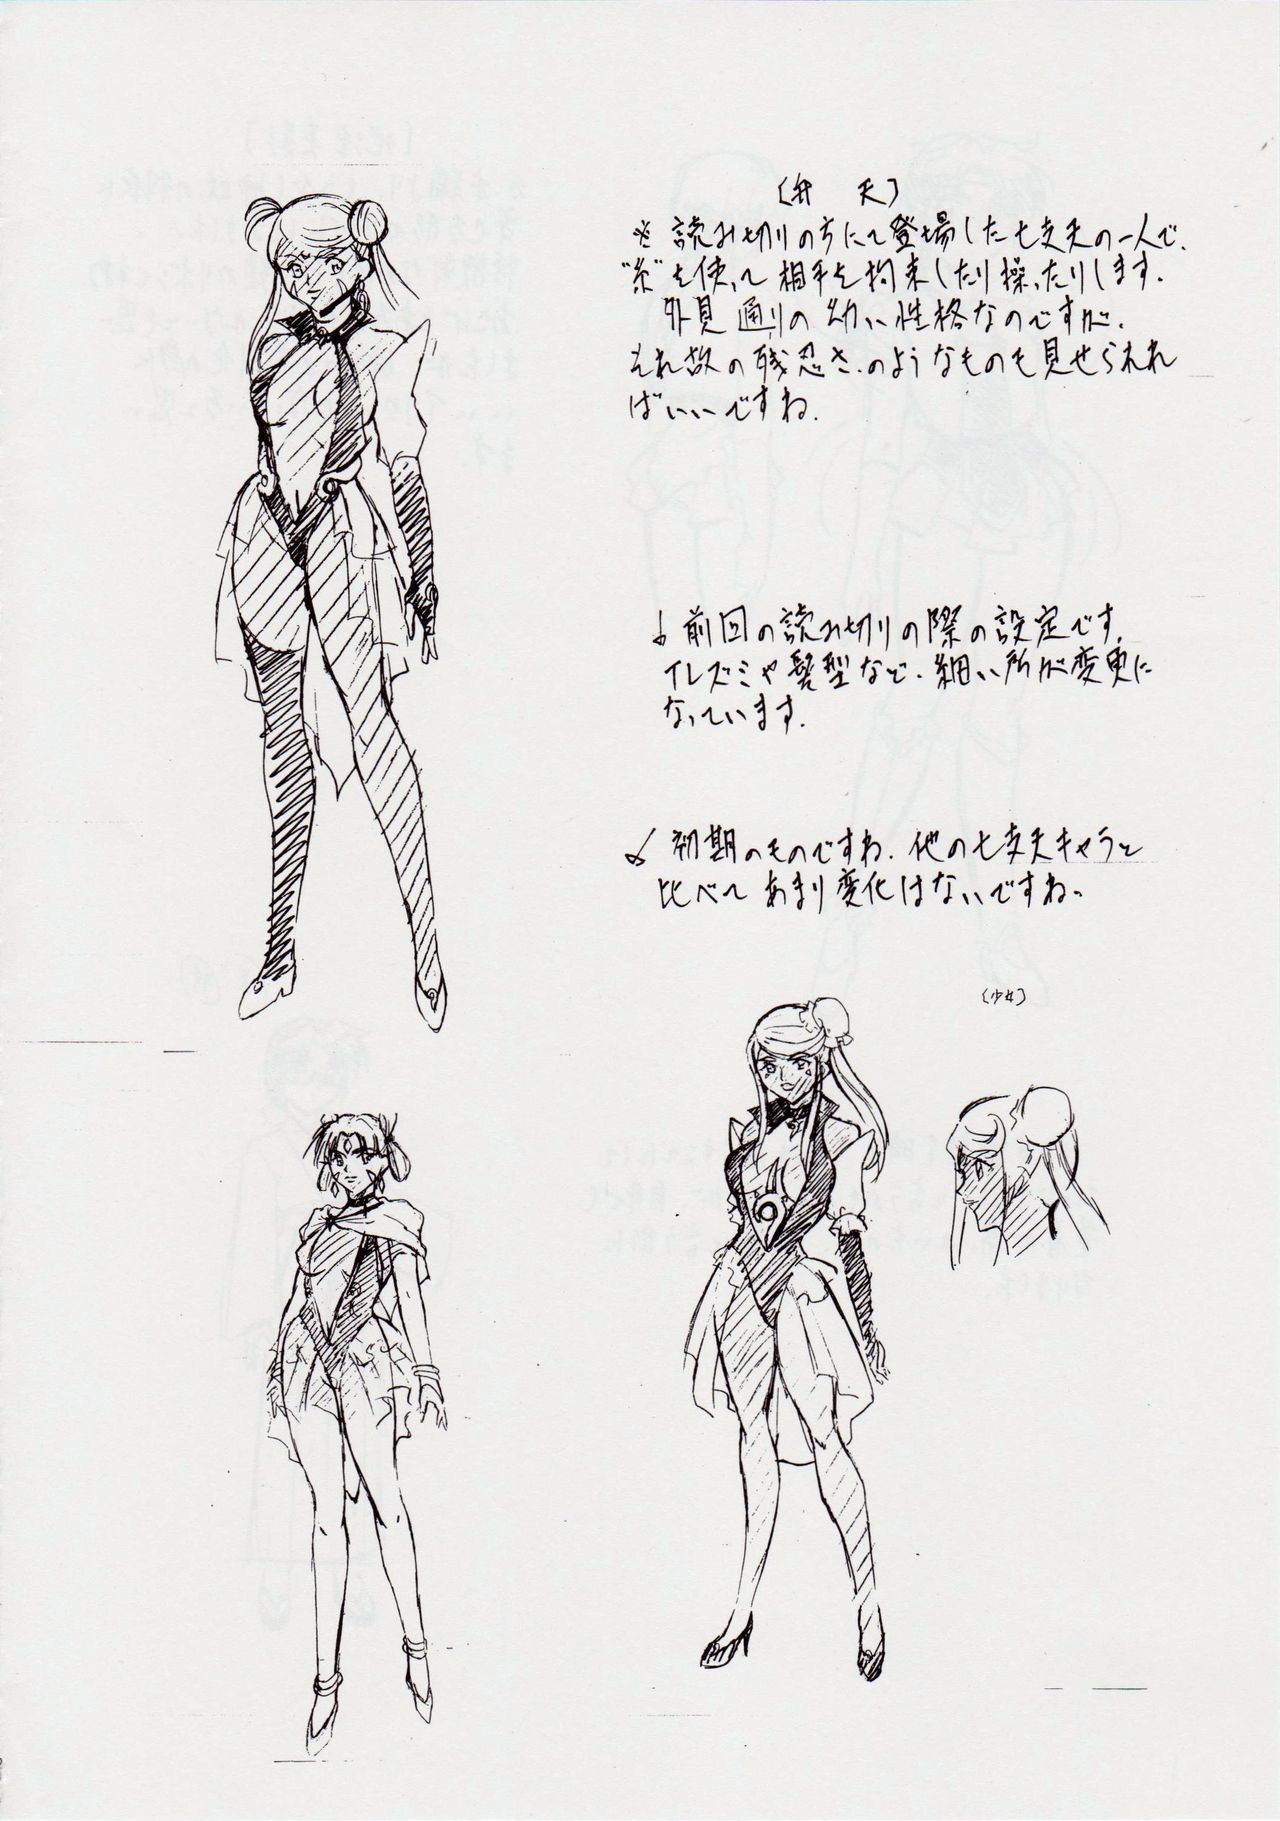 〔弁 天〕
※読み切りの方にて登場した七支天の一人で、
"糸"を使って相手を拘束したり操ったりします。
外見通りの幼い性格なのですが、
それ故の残忍さのようなものも見せられれ
ばいいですね。
↓前回の読み切りの際の設定です。
イレズミや髪型など、細い所が変更に
なっています。
↙初期のものですね。他の七支天キャラと
比べてあまり変化はないですね。
〔少女〕